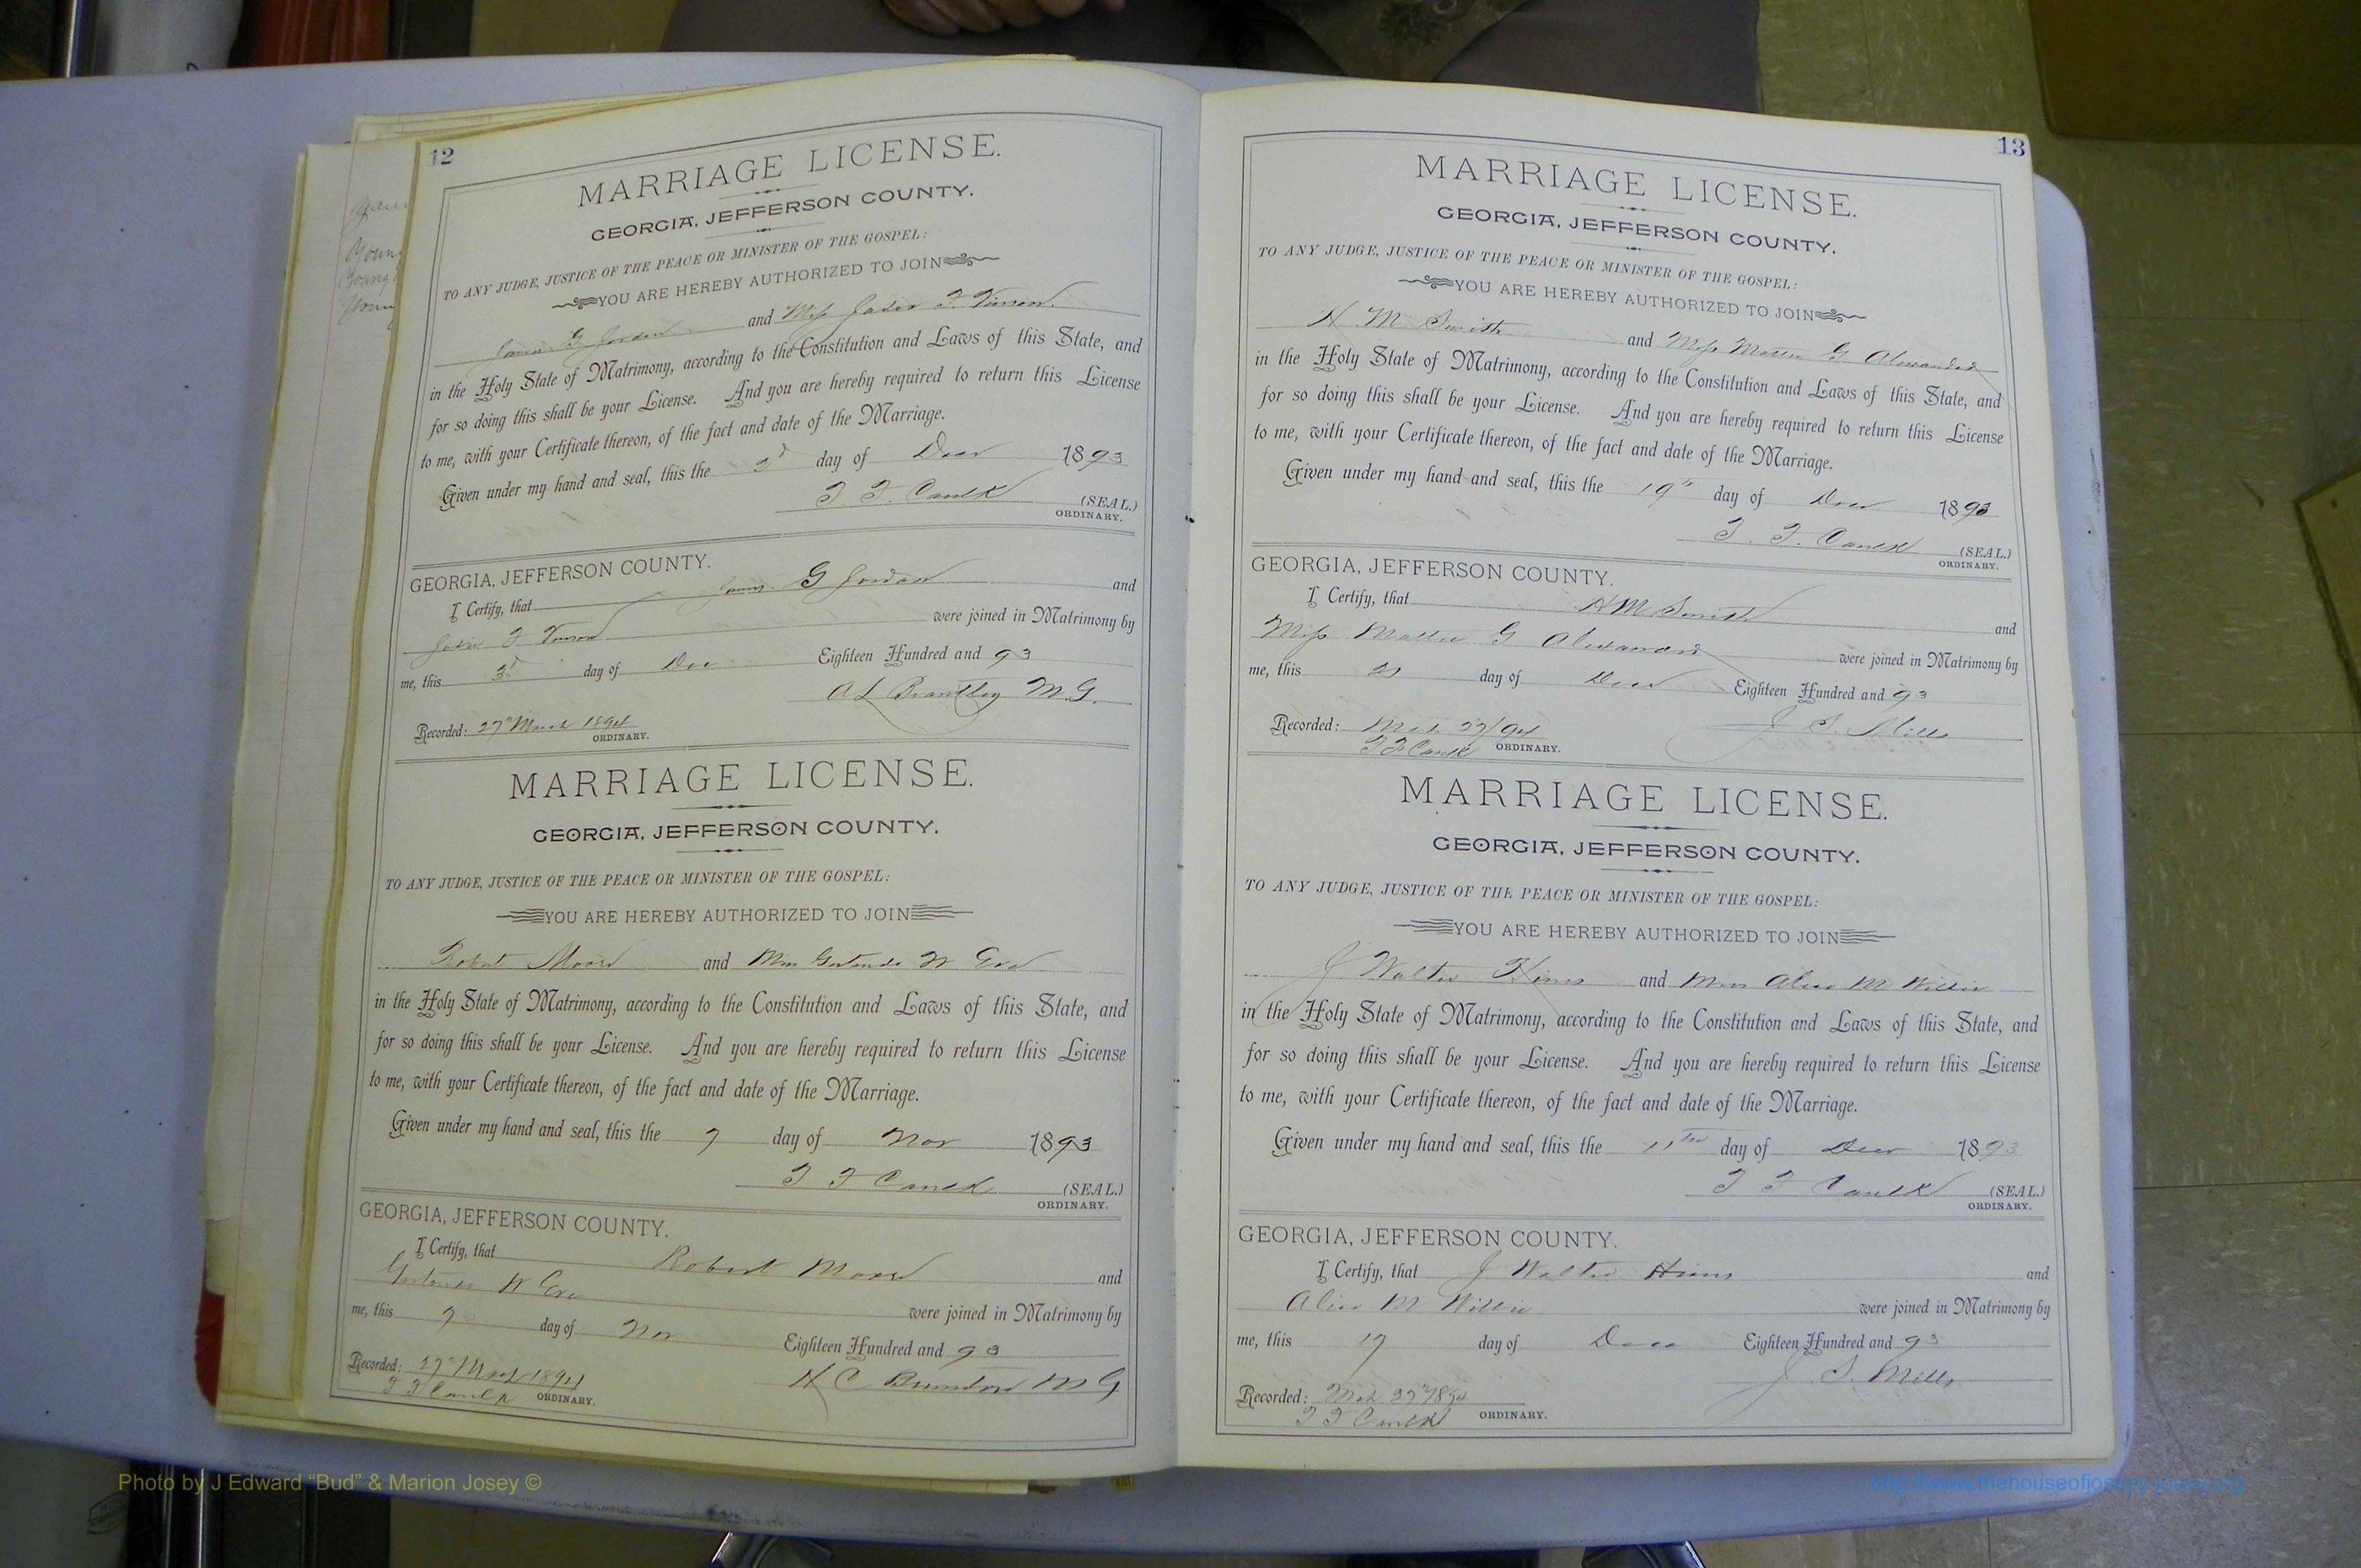 12
MARRIAGE LICENSE.
GEORGIA, JEFFERSON COUNTY.
TO ANY JUDGE, JUSTICE OF THE PEACE OR MINISTER OF THE GOSPEL:
YOU ARE HEREBY AUTHORIZED TO JOIN
G Jordan and Miss F. Vinson
in the Holy State of Matrimony, according to the Constitution and Laws of this State, and
for so doing this shall be your License. And you are hereby required to return this License
to me, with your Certificate thereon, of the fact and date of the Marriage.
Given under my hand and seal, this the day of 1893
T. F. Caulk (SEAL.)
ORDINARY.
GEORGIA, JEFFERSON COUNTY.
I Certify, that G Jordan and
F Vinson were joined in Matrimony by
me, this 3d day of Dec Eighteen Hundred and 93
A L Brantley M.G.
Recorded: 27th March 1894
ORDINARY.
MARRIAGE LICENSE.
GEORGIA, JEFFERSON COUNTY.
TO ANY JUDGE, JUSTICE OF THE PEACE OR MINISTER OF THE GOSPEL:
YOU ARE HEREBY AUTHORIZED TO JOIN
Robert Moore and Miss Gertrude W
in the Holy State of Matrimony, according to the Constitution and Laws of this State, and
for so doing this shall be your License. And you are hereby required to return this License
to me, with your Certificate thereon, of the fact and date of the Marriage.
Given under my hand and seal, this the 7 day of Nov 1893
T F Caulk (SEAL.)
ORDINARY.
GEORGIA, JEFFERSON COUNTY.
I Certify, that Robert Moore and
Gertrude W were joined in Matrimony by
me, this 7 day of Nov Eighteen Hundred and 93
H C M G
Recorded: 27th 1894
T F Caulk ORDINARY.
13
MARRIAGE LICENSE.
GEORGIA, JEFFERSON COUNTY.
TO ANY JUDGE, JUSTICE OF THE PEACE OR MINISTER OF THE GOSPEL:
YOU ARE HEREBY AUTHORIZED TO JOIN
H M Smith and Miss Mattie G. Alexander
in the Holy State of Matrimony, according to the Constitution and Laws of this State, and
for so doing this shall be your License. And you are hereby required to return this License
to me, with your Certificate thereon, of the fact and date of the Marriage.
Given under my hand and seal, this the 19th day of Decr 1893
T. F. Caulk (SEAL.)
ORDINARY.
GEORGIA, JEFFERSON COUNTY.
I Certify, that H M Smith and
Miss Mattie G Alexander were joined in Matrimony by
me, this day of Decr Eighteen Hundred and 93
J S. Mills
Recorded: Mch 27/94
T F Caulk ORDINARY.
MARRIAGE LICENSE.
GEORGIA, JEFFERSON COUNTY.
TO ANY JUDGE, JUSTICE OF THE PEACE OR MINISTER OF THE GOSPEL:
YOU ARE HEREBY AUTHORIZED TO JOIN
J Walter Hines and Miss Alice M Willie
in the Holy State of Matrimony, according to the Constitution and Laws of this State, and
for so doing this shall be your License. And you are hereby required to return this License
to me, with your Certificate thereon, of the fact and date of the Marriage.
Given under my hand and seal, this the 11th day of Decr 1893
T F Caulk (SEAL.)
ORDINARY.
GEORGIA, JEFFERSON COUNTY.
I Certify, that J Walter Hines and
Alice M Willie were joined in Matrimony by
me, this 17 day of Eighteen Hundred and 93
J. S. Mills
Recorded: Mch 27th 1894
T F Caulk ORDINARY.
Photo by J Edward “Bud” & Marion Josey ©